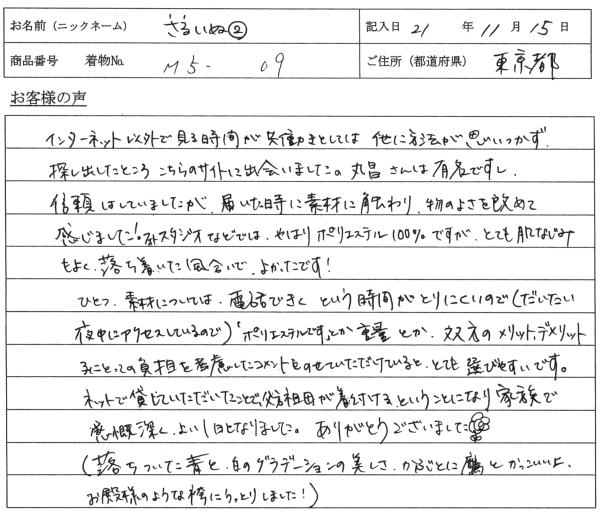 お名前（ニックネーム） さるいぬ② 記入日 21 年 11 月 15 日
商品番号 着物No. M5- 09 ご住所（都道府県） 東京都
お客様の声
インターネット以外で見る時間が共働きとしては 他に方法が思いつかず、
探し出したところ こちらのサイトに出会いました。丸昌さんは有名ですし、
信頼はしていましたが、届いた時に素材に触わり、物のよさを改めて
感じました！スタジオなどでは、やはりポリエステル100％ですが、とても肌なじみ
もよく、落ち着いた風合いで、よかったです！
ひとつ、素材については、電話できくという時間がとりにくいので（だいたい
夜中にアクセスしているので）「ポリエステルです」とか重量とか、双方のメリット、デメリット
子にとっての負担を考慮したコメントをのせていただけていると、とても選びやすいです。
ネットで貸していただいたことで、祖母が着付けするということになり家族で
感慨深く、よい1日となりました。ありがとうございました
（落ちついた青と、白のグラデーションの美しさ、かぶとに鷹とかっこいい、
お殿様のような袴にうっとりしました！）